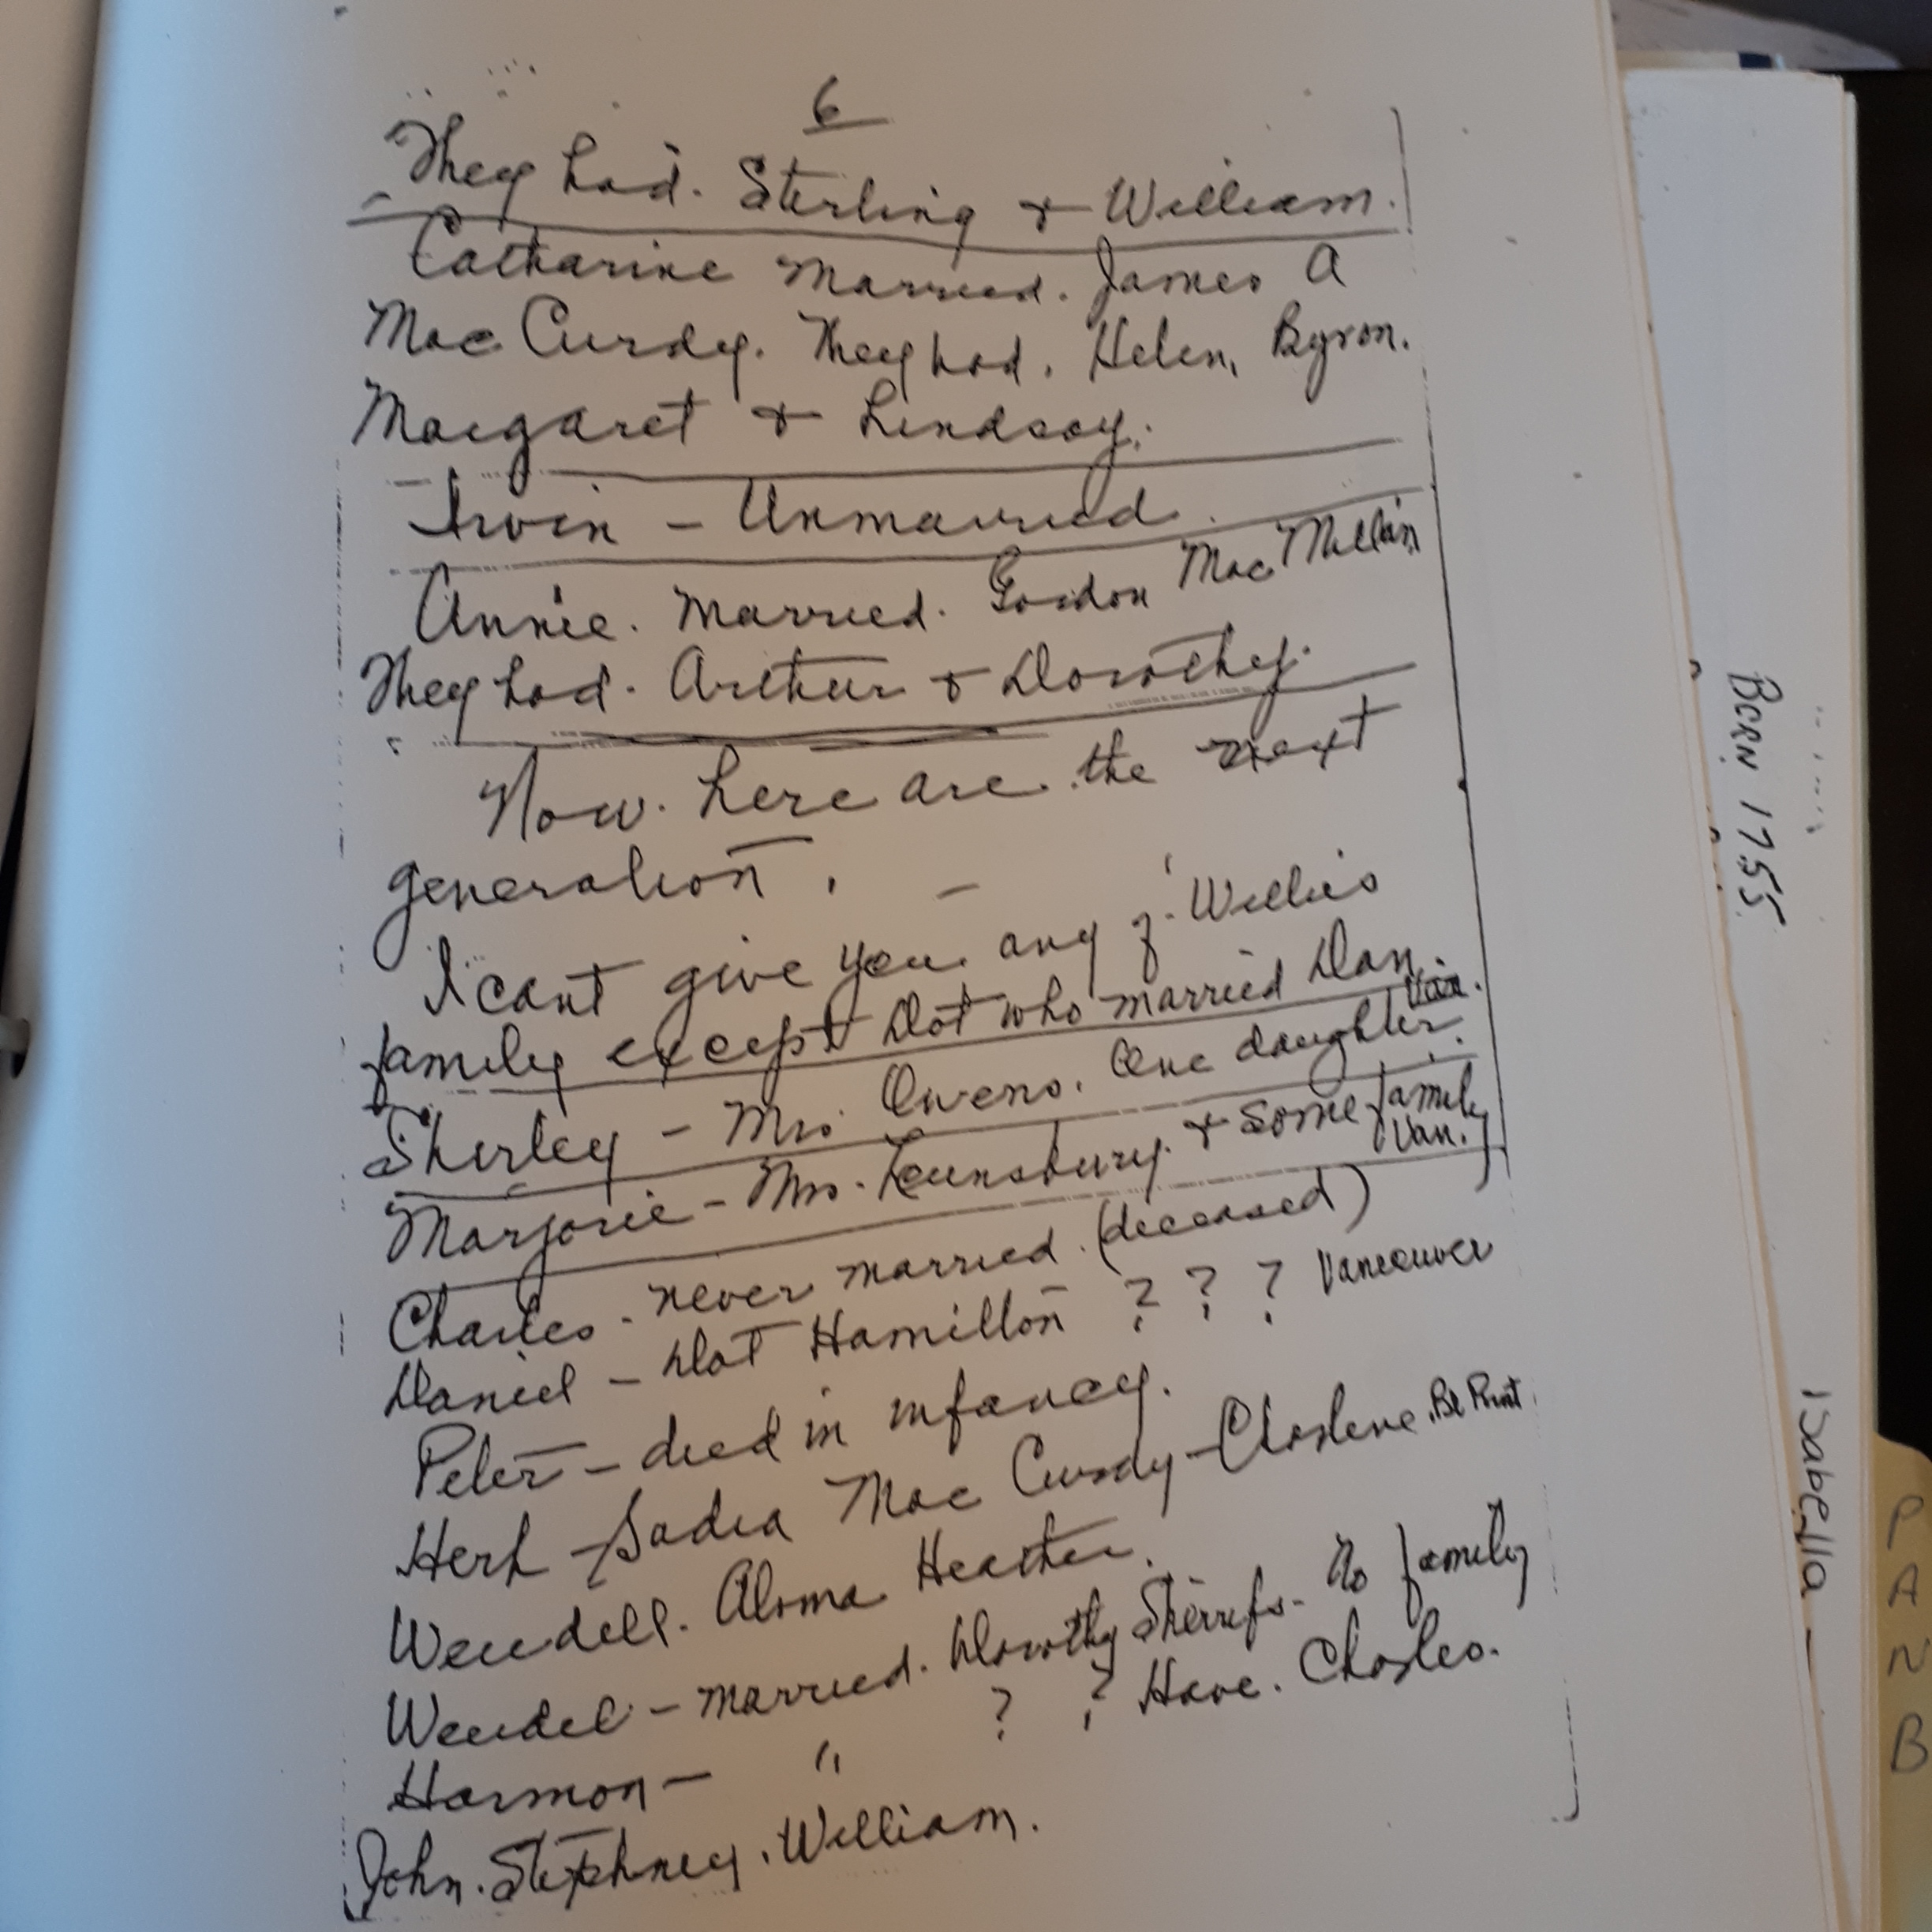 6
They had. Sterling & William.
Catharine Married. James A
Mac Curdy. They had. Helen, Byron.
Margaret & Lindsay.
Irvin - Unmarried.
Annie. Married. Gordon MacMillan
They had. Arthur & Dorothy.
Now. here are the next
generation. -
I cant give you any of Willies
family except Dot who married Dan.
Van.
Shirley - Mrs. Owens. One daughter.
Marjorie - Mrs. Lounsbury. & some family
Van.
Charles - never married. (deceased)
Daniel - Dot Hamilton ? ? ? Vancouver
Peter - died in infancy.
Herb - Sadia Mac Curdy - Charlene.
Wendell. Aloma Heather.
Wendel - married. Dorothy Sherrifs - No family
Harmon - " ? ? Have. Charles.
John. Stephney. William.
BORN 1755
Isabella -
P
A
N
B